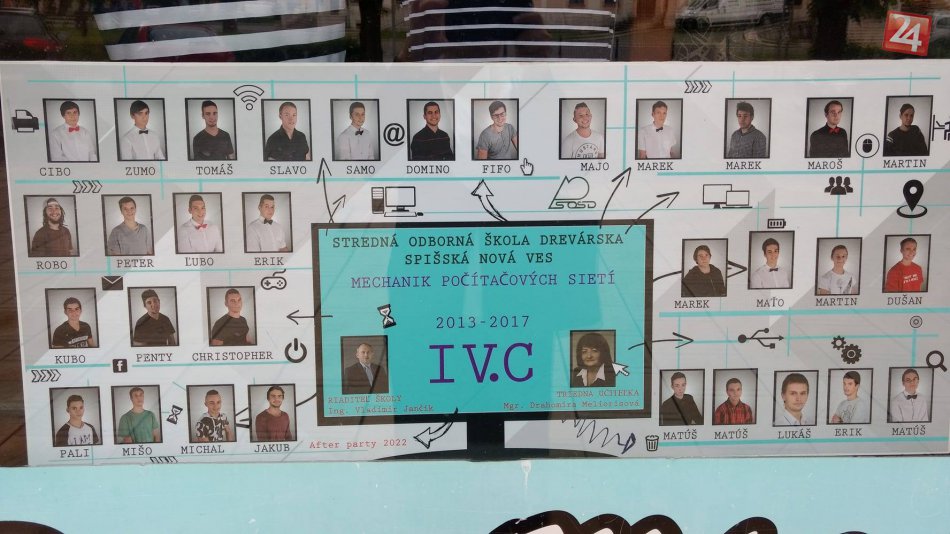 24
CIBO ZUMO TOMÁŠ SLAVO SAMO DOMINO FIFO MAJO MAREK MAREK MAROŠ MARTIN
ROBO PETER ĽUBO ERIK
STREDNÁ ODBORNÁ ŠKOLA DREVÁRSKA
SPIŠSKÁ NOVÁ VES
MECHANIK POČÍTAČOVÝCH SIETÍ
2013-2017
IV.C
RIADITEĽ ŠKOLY
Ing. Vladimír Jančík
TRIEDNA UČITEĽKA
Mgr. Drahomíra Meliorisová
MAREK MAŤO MARTIN DUŠAN
KUBO PENTY CHRISTOPHER
PALI MIŠO MICHAL JAKUB
After party 2022
MATÚŠ MATÚŠ LUKÁŠ ERIK MATÚŠ